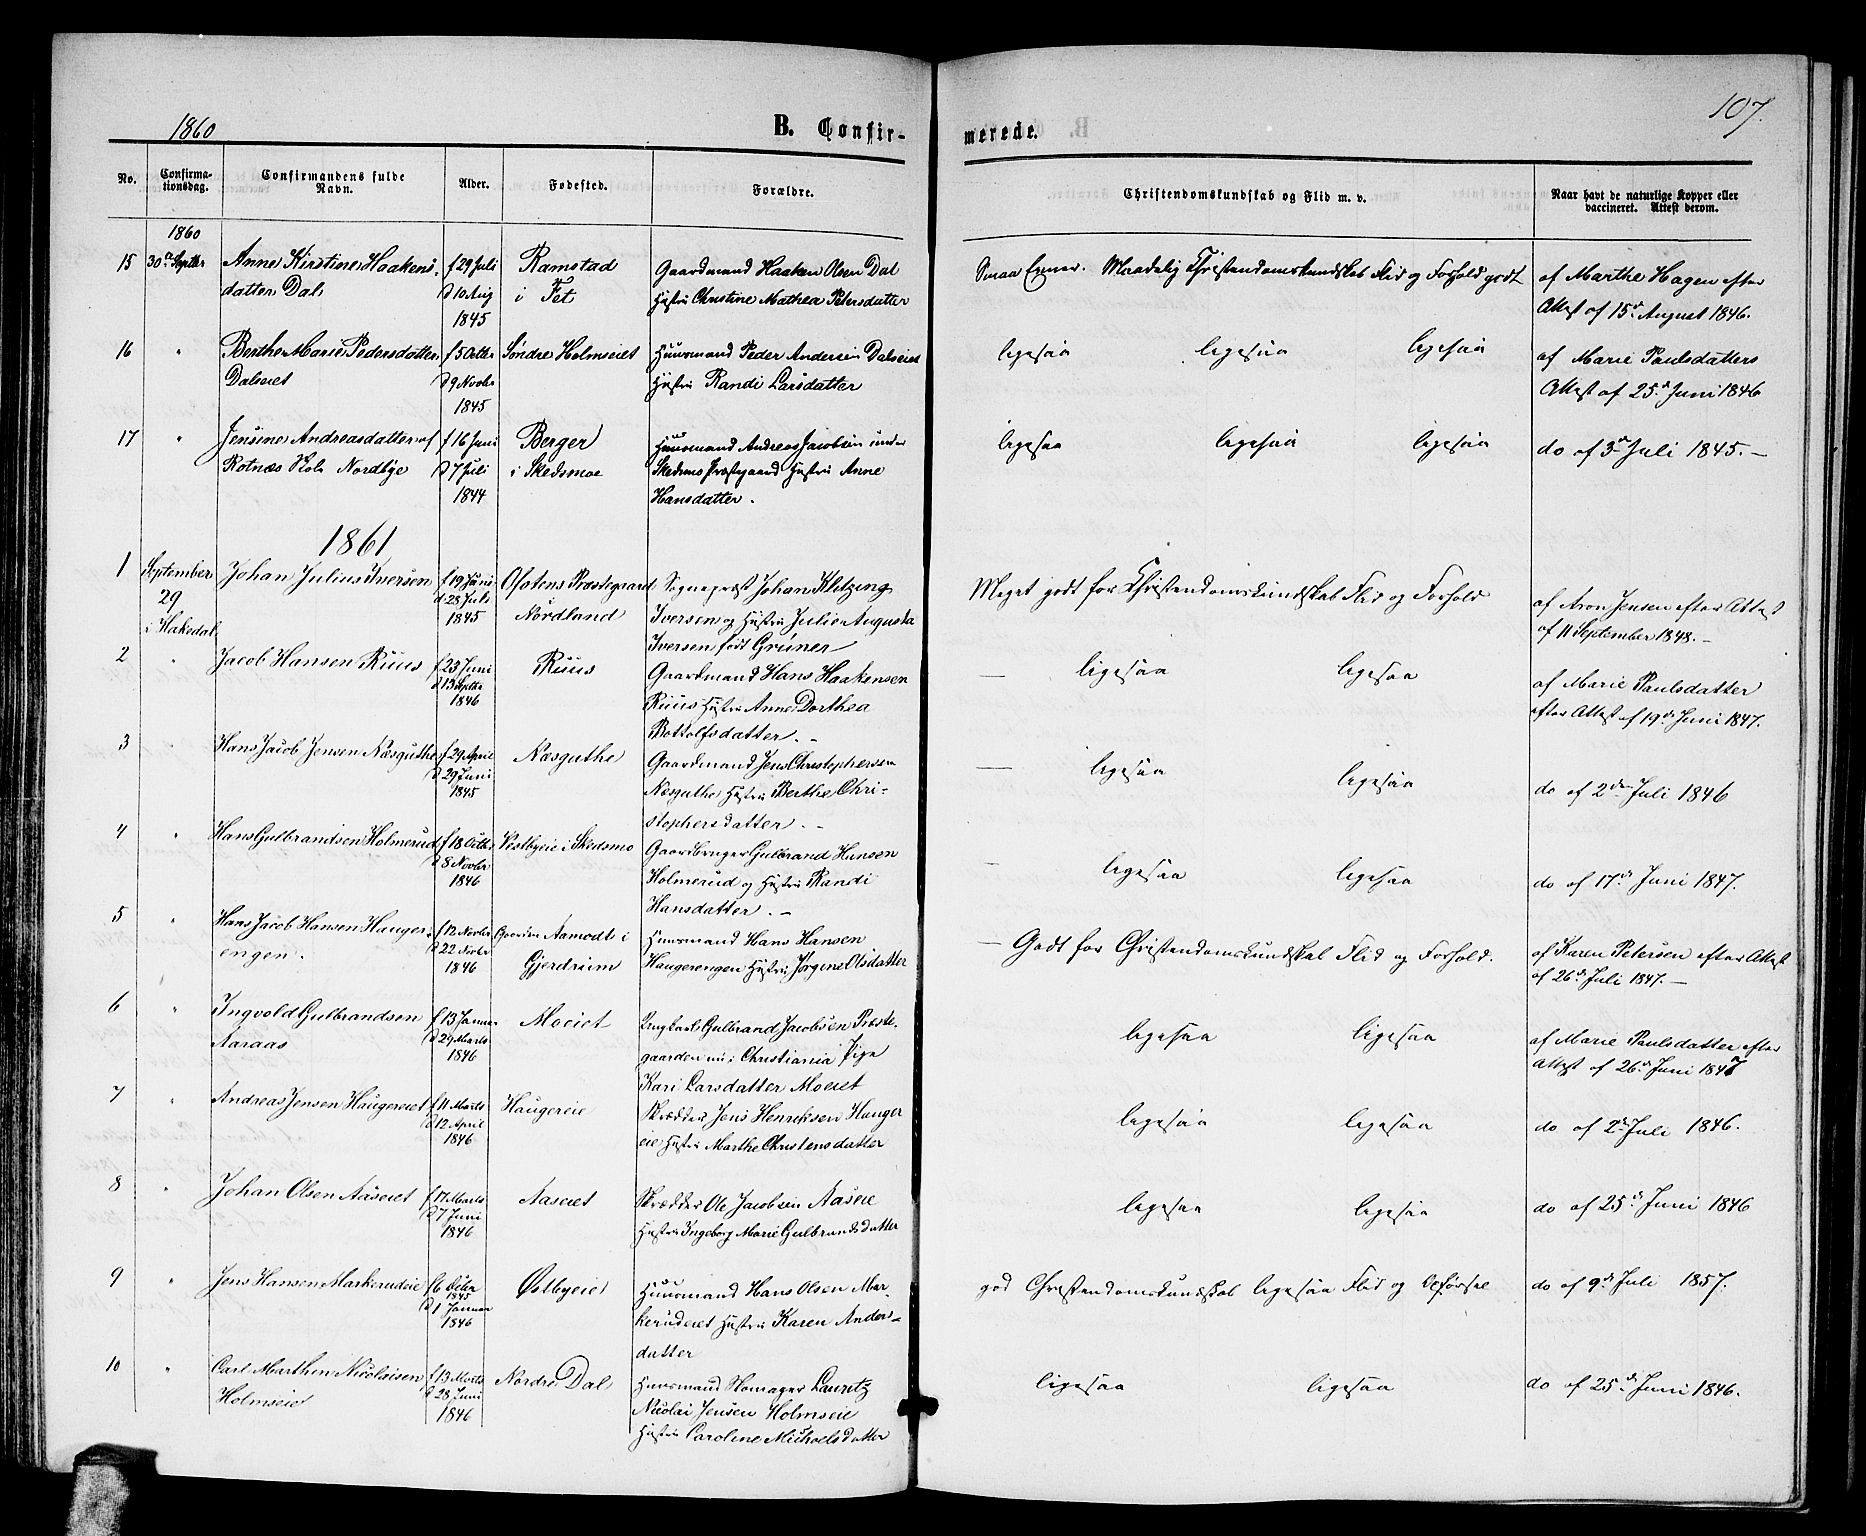 1860
B. Confir-
merede.
107.
No.
Confirma-
tionsdag.
Confirmandens fulde
Navn.
Alder.
Fødested.
Forældre.
Christendomskundskab og Flid m. v.
Naar havt de naturlige Kopper eller
vaccineret. Attest derom.
1860
15 30te Septbr Anne Kirstine Haakens- f 29 Juli Ramstad Gaardmand Haaken Olsen Dal Smaa Evner. Maadelig Christendomskundskab Flid og Forhold godt af Marthe Hagen efter
datter Dal d 10 Aug i Fet Hustru Christine Mathea Petersdatter Attest af 15de August 1846.
1845
16 " Berthe Marie Pedersdatter f 5 Octbr Søndre Holmseiet Huusmand Peder Andersen Dalseiet ligesaa ligesaa ligesaa af Marie Paulsdatters
Dalseiet d 9 Novbr Hustru Randi Larsdatter Attest af 25de Juni 1846
1845
17 " Jensine Andreasdatter af f 16 Juni Berger Huusmand Andreas Jacobsen under ligesaa ligesaa ligesaa do af 3de Juli 1845. —
Rotnæs Nordbye d 7 Juli i Skedsmoe Skedsmo Præstegaard Hustru Anne
1844 Hansdatter.
1861
1 September Johan Julius Iversen f 19 Juni Ofotens Præstegaard Sognepræst Johan Klitzing Meget godt for Christendomskundskab Flid og Forhold af Aron Jensen efter Attest
29 d. 28 Juli Nordland Iversen og Hustru Julie Augusta af 11 September 1848. —
i Hakedal 1845 Iversen født Grüner
2 " Jacob Hansen Ruus f 23 Juni Ruus Gaardmand Hans Haakensen — ligesaa ligesaa af Marie Paulsdatter
d 13 Septbr Ruus Hustru Anne Dorthea efter Attest af 19de Juni 1847.
1846 Bottolfsdatter. —
3 " Hans Jacob Jensen Næsguthe f 29 April Næsguthe Gaardmand Jens Christophersen — ligesaa ligesaa do af 2den Juli 1846
d 29 Juni Næsguthe Hustru Berthe Chri-
1845 stophersdatter. —
4 " Hans Gulbrandsen Holmerud f 18 Octbr Vestbyeie i Skedsmo Gaardbruger Gulbrand Hansen — ligesaa ligesaa do af 17de Juni 1847.
d 8 Novbr Holmerud og Hustru Randi
1846 Hansdatter. —
5 " Hans Jacob Hansen Hauger- f 12 Novbr Gaarden Aamodt i Huusmand Hans Hansen — Godt for Christendomskundskab Flid og Forhold. af Karen Petersen efter Attest
engen. d 22 Novbr Gjerdrum Haugerengen Hustru Jørgine Olsdatter af 26de Juli 1847. —
1846
6 " Ingvold Gulbrandsen f 13 Januar Moeiet Gulbrand Jacobsen Præste- ligesaa ligesaa af Marie Paulsdatter efter
Aaraas d 29 Marts gaarden nu i Christiania Pige Attest af 26de Juni 1847
1846 Kari Larsdatter Moeiet
7 " Andreas Jensen Haugereiet f 11 Marts Haugereie Skrædder Jens Henriksen Hauger ligesaa ligesaa do af 2de Juli 1846.
d 12 April eie Hustru Marthe Christensdatter
1846
8 " Johan Olsen Aaseiet f 17 Marts Aaseiet Skrædder Ole Jacobsen Aaseie ligesaa ligesaa do af 25de Juni 1846
d 7 Juni Hustru Ingeborg Marie Gulbrandsdatter
1846
9 " Jens Hansen Markerudeie f 6 Octbr Østbyeie Huusmand Hans Olsen Mar- god Christendomskundskab ligesaa Flid og Opførsel do af 9de Juli 1857.
1845
d 1 Januar kerudeiet Hustru Karen Anders-
1846 datter
10 " Carl Marthin Nicolaisen f 13 Marts Nordre Dal Huusmand Skomager Lauritz ligesaa ligesaa do af 25de Juni 1846.
Holmseie d 28 Juni Nicolai Jensen Holmseie
1846 Hustru Caroline Michelsdatter